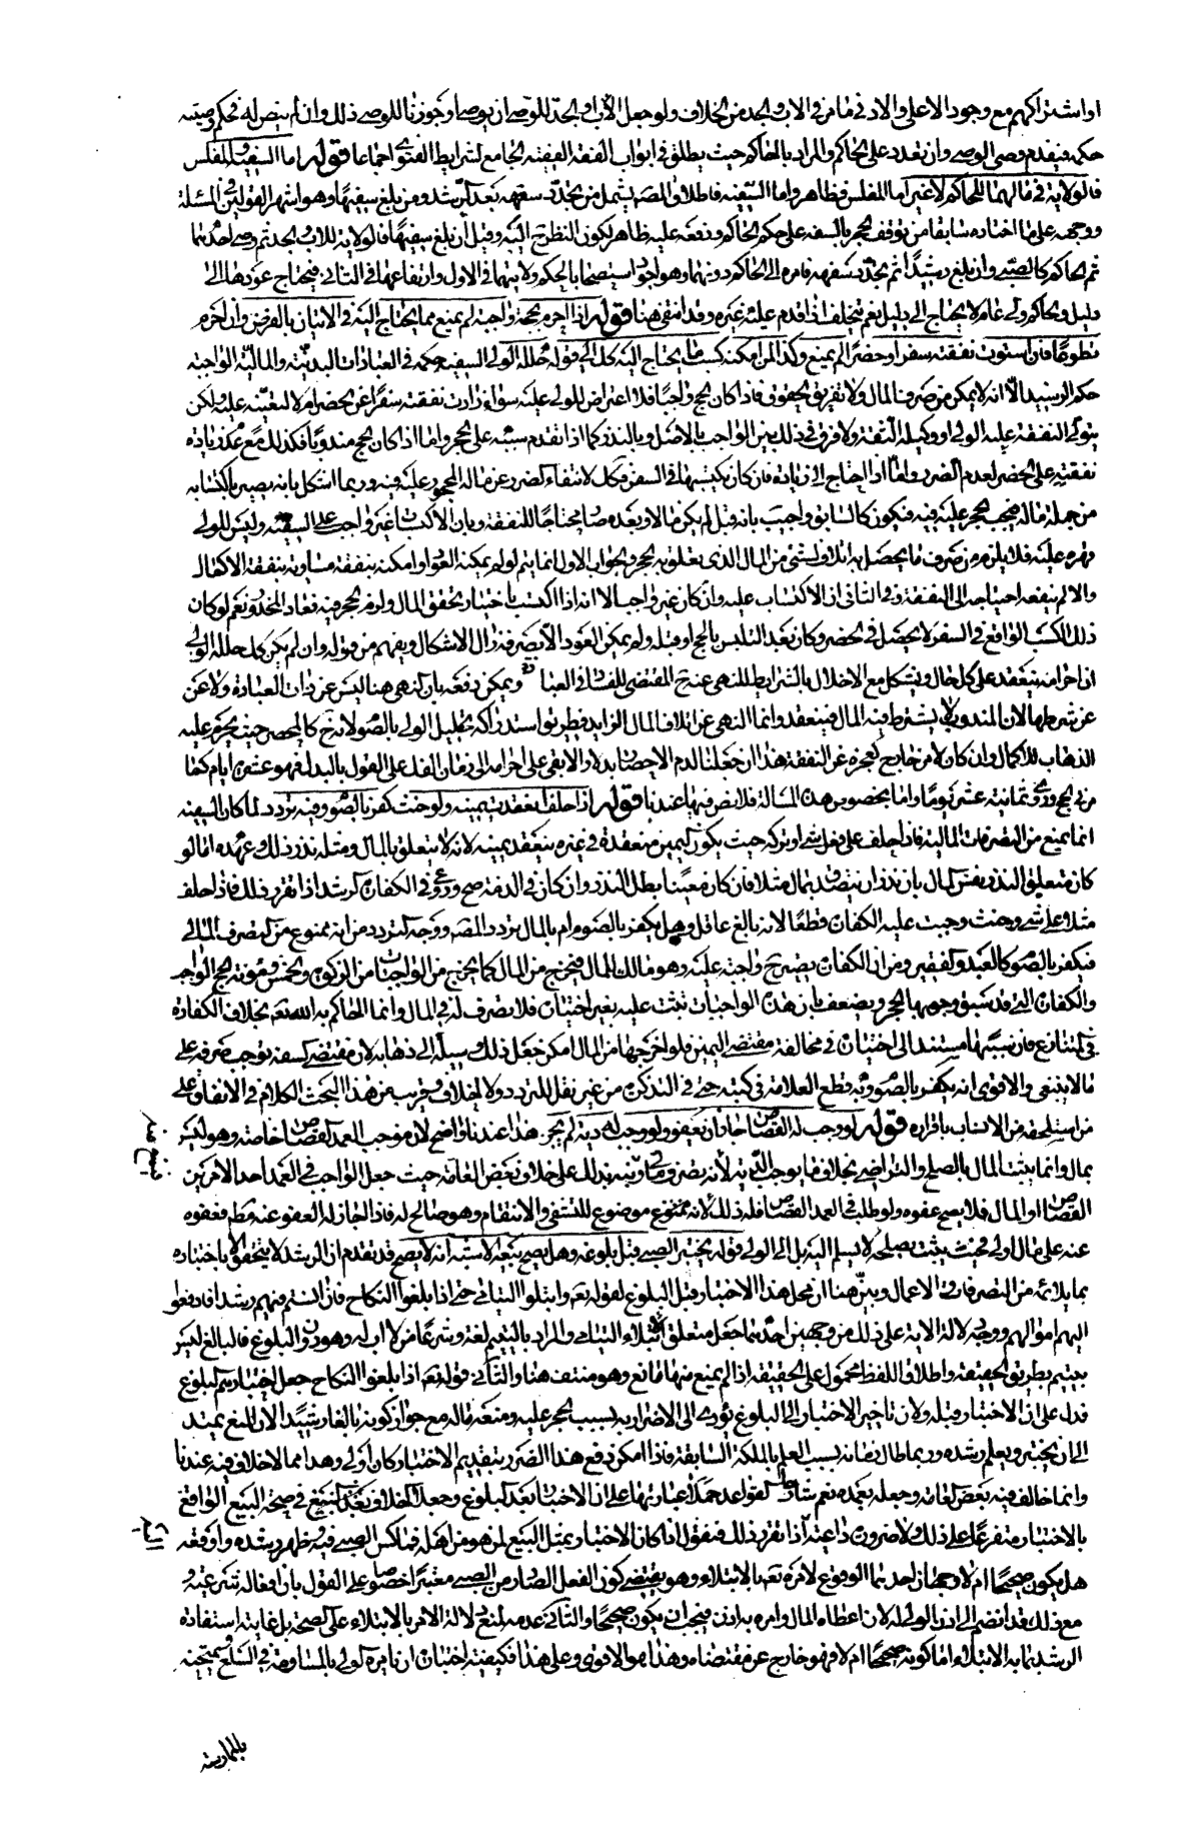 او اشتراكهم مع وجود الاعلى والادنى ما مر في الاب والجد من الخلاف ولو جعل الاب او الجد للوصي ان يوصي او جوزنا للوصي ذلك وان لم ينص له فحكم وصيته
حكمه فيقدم وصي الوصي وان تعدد على الحاكم والمراد بالحاكم حيث يطلق في ابواب الفقه الفقيه الجامع لشرايط الفتوى اجماعا قوله اما السفيه والمفلس
فالولاية في مالهما للحاكم لا غير اما المفلس فظاهر واما السفيه فاطلاق المصنف يشمل من تجدد سفهه بعد الرشد ومن بلغ سفيها وهو اشهر القولين في المسئلة
ووجهه على ما اختاره سابقا من توقف الحجر بالسفه على حكم الحاكم ورفعه عليه ظاهر لكون النظر ح اليه وقيل ان بلغ سفيها فالولاية للاب والجد ثم وصي احدهما
ثم الحاكم كالصبي وان بلغ رشيدا ثم تجدد سفهه فامره الى الحاكم دونهما وهو اجود استصحابا لحكم ولايتهما في الاول وارتفاعها في الثاني فيحتاج عودها الى
دليل والحاكم ولي عام لا يحتاج الى دليل نعم يتخلف اذا قدم عليه غيره وقد انتفى هنا قوله اذا احرم بحجة واجبة لم يمنع مما يحتاج اليه في الاتيان بالفرض وان احرم
تطوعا فان استوت نفقته سفرا وحضرا لم يمنع وكذا لمن امكنه كسب ما يحتاج اليه كل الى قوله حلله الولي السفيه حكمه في العبادات البدنية والمالية الواجبة
حكم الرشيد الا انه لا يمكن من صرف المال ولا تفريق الحقوق فاذا كان الحج واجبا فلا اعتراض للولي عليه سواء زادت نفقته سفرا عن الحضر ام لا لتعينه عليه لكن
يتولى النفقة عليه الولي او وكيله الثقة ولا فرق في ذلك بين الواجب بالاصل وبالنذر كما اذا تقدم سببه على الحجر واما اذا كان الحج مندوبا فكذلك مع عدم زيادة
نفقته على الحضر لعدم الضرر واما اذا احتاج الى زيادة فان كان يكتسبها في السفر فكل لانتفاء الضرر عن ماله المحجور عليه فيه وربما استشكل بانه يصير بالكتابه
من جملة ماله فيجب الحجر عليه فيه فيكون كالسابق واجيب بانه قبل لم يكن مالا وبعده صار محتاجا للنفقة وبان الاكتساب غير واجب على السفيه وليس للولي
قهره عليه فلا يلزم من صرف ما يحصل به اتلاف لشيء من المال الذي تعلق به الحجر والجواب الاول انما يتم لو لم يمكنه العود او امكنه بنفقة مساوية لنفقة الاكمال
والا لم ينفعه احتياجه الى النفقة وفي الثاني ان الاكتساب عليه وان كان غير واجب الا انه اذا اكتسب باختياره تحقق المال ولزم الحجر فيه فعاد المحذور نعم لو كان
ذلك الكسب الواقع في السفر لا يحصل في الحضر وكان بعد التلبس بالحج او قبله ولم يمكن العود الا بضرر زال الاشكال ويفهم من قوله وان لم يكن كل حلله الولي
ان احرامه ينعقد على كل حال ويشكل مع الاخلال بالشرايط للنهي عنه ح المقتضي للفساد في العبادة ويمكن دفعه بان النهي هنا ليس عن ذات العبادة ولا عن
عن شرطها لان المندوب لا يشترط فيه المال فينعقد وانما النهي عن اتلاف المال الزايد فطريق استدراكه تحليل الولي بالصوم لانه ح كالمحصر حيث يحرم عليه
الذهاب للاكمال وان كان لامر خارج لعجزه عن النفقة هذا ان جعلنا لدم الاحصار بدلا والا بقي على احرامه الى زمان الفك على القول بالبدل فهو عشرة ايام كما
مر في الحج وروي ثمانية عشر يوما واما بخصوص هذه المسالة فلا نص فيها عندنا قوله اذا حلف انعقدت يمينه ولو حنث كفر بالصوم وفيه تردد لما كان السفيه
انما يمنع من التصرفات المالية فاذا حلف على فعل شيء او تركه حيث يكون اليمين منعقدة في غيره ينعقد يمينه لانه لا يتعلق بالمال ومثله نذر ذلك وعهده اما لو
كان متعلق النذر نفس المال بان نذر ان يتصدق بمال مثلا فان كان معينا بطل النذر وان كان في الذمة صح وروعي في الكفارة الرشد اذا تقرر ذلك فاذا حلف
مثلا على شيء وحنث وجبت عليه الكفارة قطعا لانه بالغ عاقل وهل يكفر بالصوم ام بالمال تردد المصنف ووجه التردد من انه ممنوع من التصرف المالي
فيكفر بالصوم كالعبد والفقير ومن ان الكفارة يصير ح واجبة عليه وهو مالك للمال فيخرج من المال كما يخرج من الواجبات من الزكوة والخمس ومؤنة الحج الواجب
والكفارة التي قد سبق وجوبها الحجر ويضعف بان هذه الواجبات تثبت عليه بغير اختياره فلا تصرف له في المال وانما الحاكم به الله تعالى بخلاف الكفارة
في المتنازع فان سببها مستند الى اختياره في مخالفة مقتضى اليمين فلو اخرجها من المال امكن جعل ذلك وسيلة الى ذهابه لان مقتضى السفه توجب صرفه على
ما لا ينبغي والاقوى انه يكفر بالصوم وبه قطع العلامة في كتبه حتى في التذكرة من غير نقل للتردد ولا خلاف وقريب من هذا البحث الكلام في الانفاق على
من استلحقه من الانساب باقراره قوله لو وجب له القصاص جاز ان يعفو ولو وجب له دية لم يجز هذا عندنا واضح لان موجب العمد القصاص خاصة وهو ليس
بمال وانما يثبت المال بالصلح والتراضي بخلاف ما يوجب الدية لانه تصرف مالي ونبه بذلك على خلاف بعض العامة حيث جعل الواجب في العمد احد الامرين
القصاص او المال فلا يصح عفوه ولو طلب في العمد القصاص فله ذلك لانه موضوع للتشفي والانتقام وهو صالح له فاذا جاز له العفو عنه مطلقا فعفوه
عنه على مال اولى فحيث يثبت بصلحه لا يسلم اليه بل الى الولي قوله يختبر الصبي قبل بلوغه وهل يصح بيعه الاشبه انه لا يصح قد تقدم ان الرشد لا يتحقق الا باختباره
بما يلائمه من التصرفات والاعمال وبين هنا ان محل هذا الاختبار قبل البلوغ لقوله تعالى وابتلوا اليتامى حتى اذا بلغوا النكاح فان آنستم منهم رشدا فادفعوا
اليهم اموالهم ووجه دلالة الاية على ذلك من وجهين احدهما جعل متعلق الابتلاء اليتامى والمراد باليتيم لغة وشرعا من لا اب له وهو دون البلوغ فالبالغ ليس
بيتيم بطريق الحقيقة واطلاق اللفظ محمول على الحقيقة اذا لم يمنع منها مانع وهو منتف هنا والثاني قوله تعالى حتى اذا بلغوا النكاح جعل اختبارهم البلوغ
فدل على ان الاختبار قبله ولان تاخير الاختبار الى البلوغ يؤدي الى الاضرار به بسبب الحجر عليه ومنعه ماله مع جواز كونه بالغا رشيدا لان المنع يمتد
الى ان يختبر ويعلم رشده وربما طال زمانه بسبب العلم بالملكة السابقة فاذا امكن دفع هذا الضرر بتقديم الاختبار كان اولى وهذا مما لا خلاف فيه عندنا
وانما خالف فيه بعض العامة وجعله بعده نعم القواعد حملا عبارتها على ان الاختبار بعد البلوغ وجعلا الخلاف بعد البلوغ في صحة البيع الواقع
بالاختبار متفرعا على ذلك ولا ضرورة داعية اذا تقرر ذلك فنقول اذا كان الاختبار بمثل البيع لمن هو من اهله فماكس الصبي فيه وظهر رشده واوقعه
هل يكون صحيحا ام لا وجهان احدهما الوقوع لامره تعالى بالابتلاء وهو يقتضي كون الفعل الصادر من الصبي معتبرا خصوصا على القول بان افعاله شرعية و
مع ذلك فقد انضم الى اذن الولي له لان اعطاه المال وامره به اذن فيجب ان يكون صحيحا والثاني عدمه لمنع دلالة الامر بالابتلاء على الصحة بل غايته استفادة
الرشد بما به الابتلاء اما كونه صحيحا ام لا فهو خارج عن مقتضاه وهذا هو الاقوى وعلى هذا فكيفية اختباره ان يامره الولي بالمساومة في السلع ويمتحنه
بالممارسة